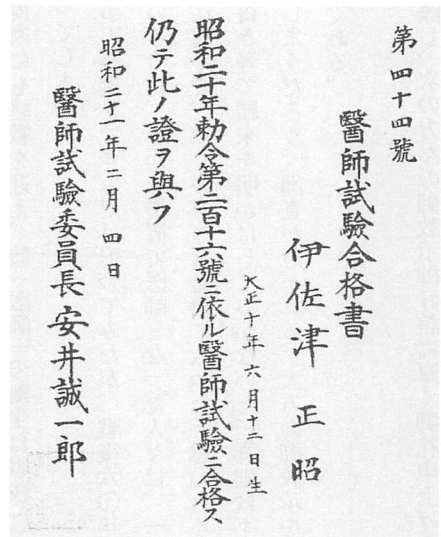 第四十四號
醫師試驗合格書
伊佐津正昭
大正十年六月十二日生
昭和二十年勅令第二百十六號ニ依ル醫師試驗ニ合格ス
仍テ此ノ證ヲ與フ
昭和二十一年二月四日
醫師試驗委員長安井誠一郎